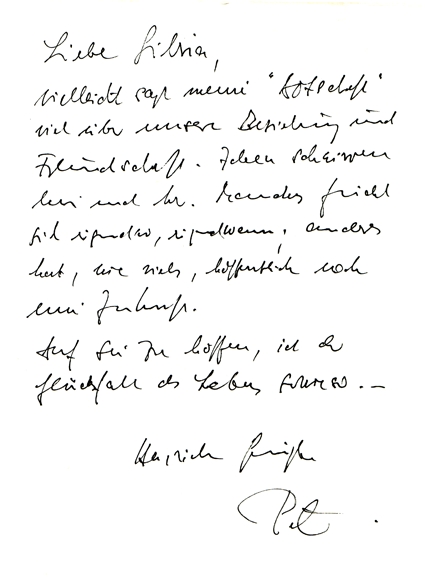 Liebe Silvia,
vielleicht sagt meine "Botschaft"
viel über unsere Beziehung und
Freundschaft. Ideen scheinen
hin und her. Manches
sich irgendwo, irgendwann, anderes
hat, wie vieles, hoffentlich noch
eine Zukunft.
Auf Sie zu hoffen, ist der
Glücksfall des Lebens sowieso. —
Herzliche Grüße
Pet